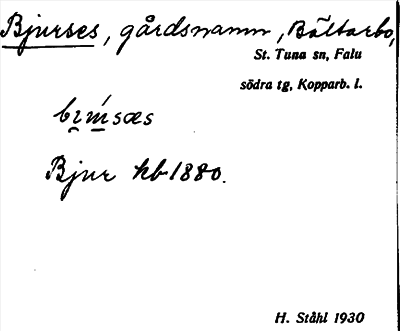 Bjurses, gårdsnamn, Båltarbo,
St. Tuna sn, Falu
södra tg, Kopparb. l.
Bjur hb 1880.
H. Ståhl 1930